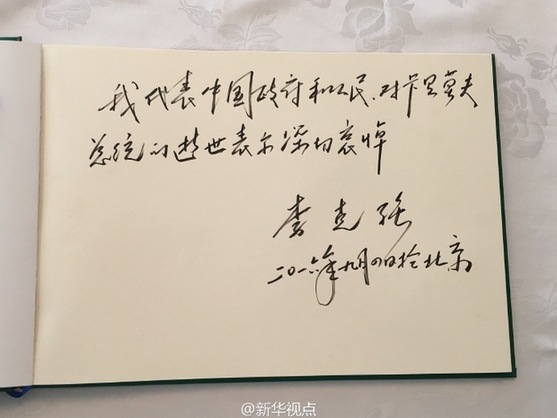 我代表中国政府和人民，对卡里莫夫
总统的逝世表示深切哀悼
李克强
二〇一六年九月四日于北京
@新华视点